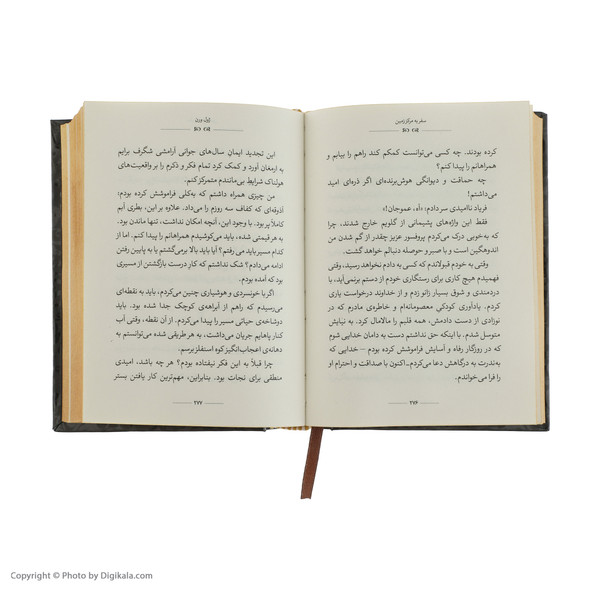 سفر به مرکز زمین
کرده بودند. چه کسی می‌توانست کمکم کند راهم را بیابم و
همراهانم را پیدا کنم؟
چه حماقت و دیوانگی هوش‌برنده‌ای اگر ذره‌ای امید
می‌داشتم!
فریاد ناامیدی سر دادم: «آه، عموجان!»
فقط این واژه‌های پشیمانی از گلویم خارج شدند، چرا
که به‌خوبی درک می‌کردم پروفسور عزیز چقدر از گم شدن من
اندوهگین است و با صبر و حوصله دنبالم خواهد گشت.
وقتی به خودم قبولاندم که کسی به دادم نخواهد رسید، وقتی
فهمیدم هیچ کاری برای رستگاری خودم از دستم برنمی‌آید، با
دردمندی و شوقی بسیار زانو زدم و از خداوند درخواست یاری
کردم. یادآوری کودکی معصومانه‌ام و خاطره‌ی مادرم که در
نوزادی از دست دادمش، همه قلبم را مالامال کرد. به نیایش
متوسل شدم، با اینکه حق نداشتم دست به دامان خدایی شوم
که در روزگار رفاه و آسایش فراموشش کرده بودم – خدایی که
به‌ندرت به درگاهش دعا می‌کردم – اکنون با صداقت و احترام او
را فرا می‌خواندم.
۲۷۶
ژول ورن
این تجدید ایمانِ سال‌های جوانی آرامشی شگرف برایم
به ارمغان آورد و کمک کرد تمام فکر و ذکرم را بر واقعیت‌های
هولناک شرایط بی‌مانندم متمرکز کنم.
من چیزی همراه داشتم که به‌کلی فراموشش کرده بودم:
آذوقه‌ای که کفاف سه روزم را می‌داد. علاوه بر این، بطری آبم
کاملاً پر بود. با وجود این، آنچه امکان نداشت، تنها ماندن بود.
به هر قیمتی شده، باید می‌کوشیدم همراهانم را پیدا کنم. اما از
کدام مسیر باید می‌رفتم؟ آیا باید بالا برمی‌گشتم یا به پایین رفتن
ادامه می‌دادم؟ شک نداشتم که کار درست بازگشتن از مسیری
بود که آمده بودم.
اگر با خونسردی و هوشیاری چنین می‌کردم، باید به نقطه‌ای
می‌رسیدم که راهم از آبراهه‌ی کوچک جدا شده بود. باید
دوشاخه‌ی حیاتی مسیر را پیدا می‌کردم. از آن نقطه، وقتی آب
کنار پاهایم جریان می‌داشت، به هر طریقی شده می‌توانستم به
دهانه‌ی اعجاب‌انگیز کوه اسنفلز برسم.
چرا قبلاً به این فکر نیفتاده بودم؟ هر چه باشد، امیدی
منطقی برای نجات بود. بنابراین، مهم‌ترین کار یافتن بستر
۲۷۷
Copyright © Photo by Digikala.com